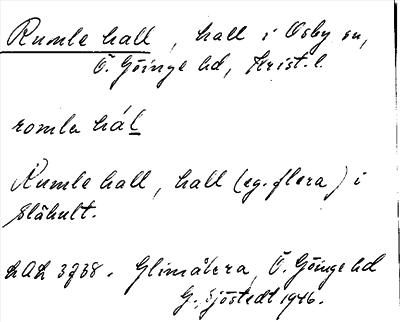 Rumle hall, hall i Osby sn,
Ö. Göinge hd, Krist. l.
romla hál
Rumle hall, hall (eg. flera) i
Slähult.
LAL 3738. Glimåkra, Ö. Göinge hd
G. Sjöstedt 1946.